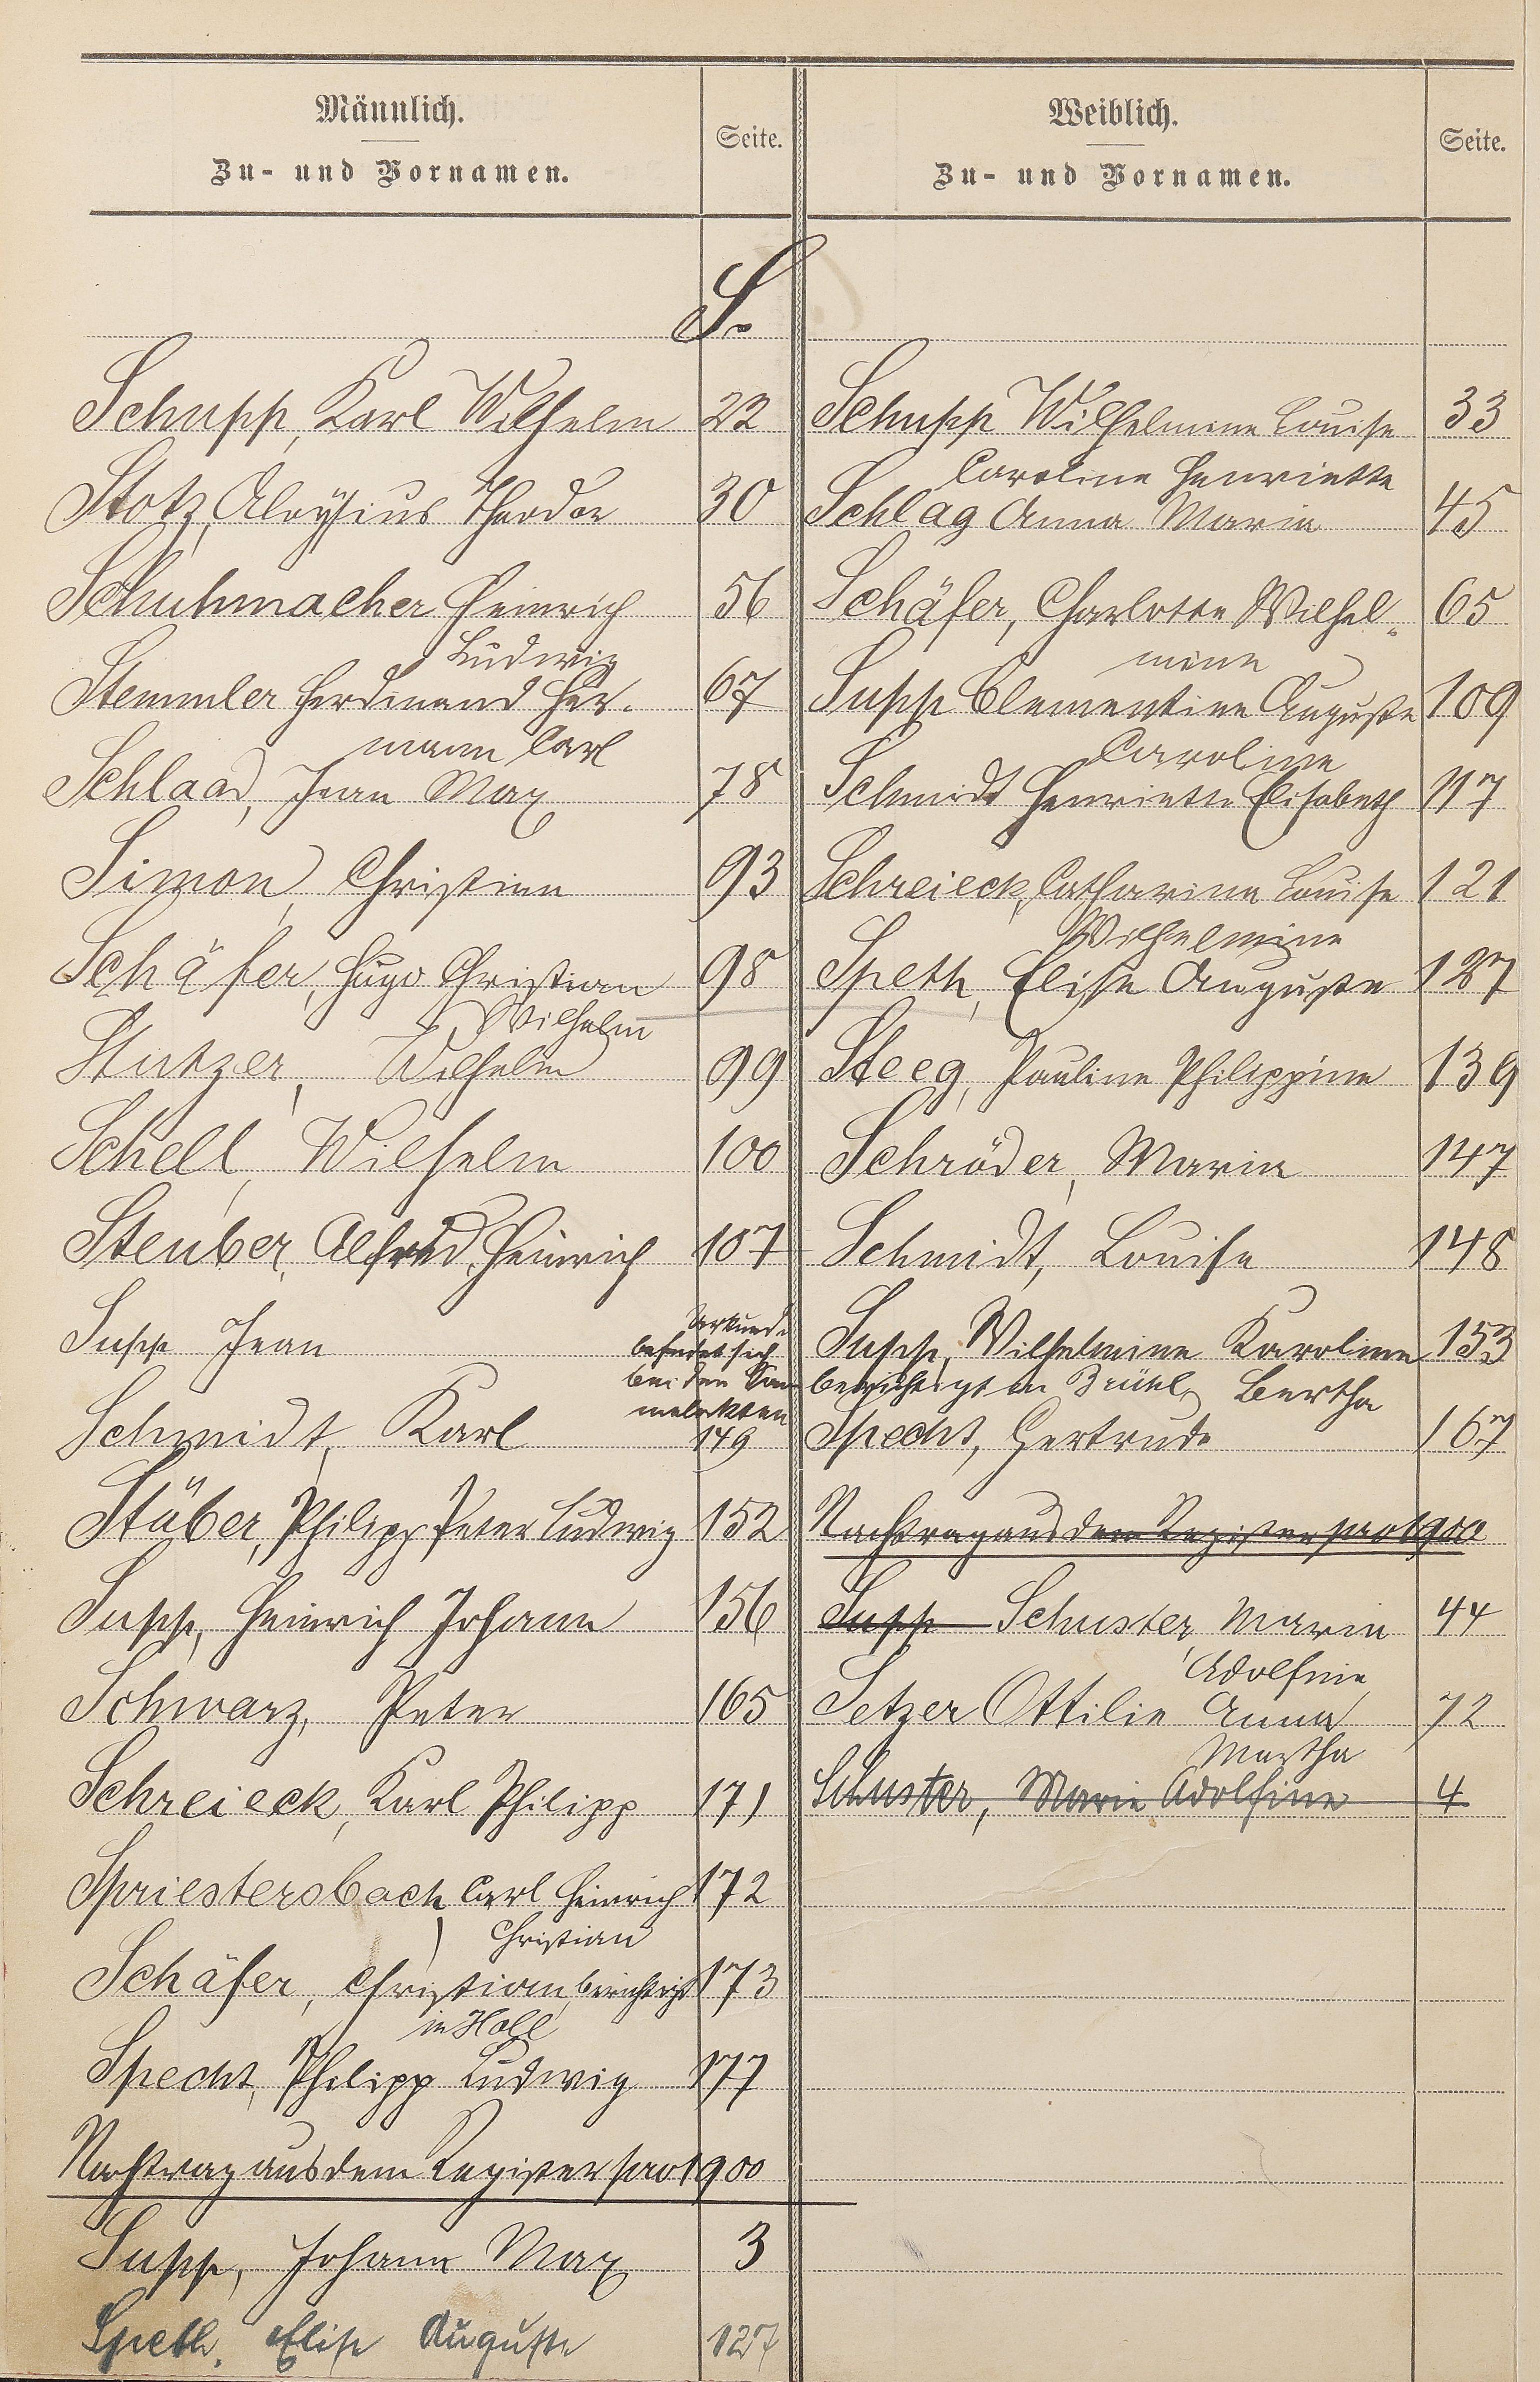 Männlich.
Zu- und Vornamen.
Seite.
S.
Schupp, Karl Wilhelm 22
Stotz, Aloysius Theodor 30
Schuhmacher Heinrich 56
Ludwig
Stemmler Ferdinand Her- 67
mann Carl
Schlaad, Jean Max 78
Simon, Christian 93
Schäfer, Hugo Christian 98
Wilhelm
Stutzer, Wilhelm 99
Schell, Wilhelm 100
Steuber, Alfred, Heinrich 107
Supp Jean Urkunde
befindet sich
bei den Sam
melakten
Schmidt, Karl 149
Stüber, Philipp Peter Ludwig 152
Supp, Heinrich Johann 156
Schwarz, Peter 165
Schreieck, Karl Philipp 171
Spriestersbach, Carl Heinrich 172
Christian
Schäfer, Christian, berichtigt 173
in Holl
Specht, Philipp Ludwig 177
Nachtrag aus dem Register pro 1900
Supp, Johann Max 3
Speth, Elise Auguste 127
Weiblich.
Zu- und Vornamen.
Seite.
Schupp Wilhelmine Louise 33
Caroline Henriette
Schlag Anna Maria 45
Schäfer, Charlotte Wilhel- 65
mine
Supp Clementine Auguste 109
Caroline
Schmidt Henriette Elisabeth 117
Schreieck, Catharina Louise 121
Wilhelmine
Speth, Elise Auguste 127
Steeg, Pauline Philippine 139
Schröder, Maria 147
Schmidt, Louise 148
Supp, Wilhelmine Karoline 153
berichtigt in Brühl, Bertha
Specht, Gertrude 167
Nachtrag aus dem Register pro 1900
Supp Schuster, Marie 44
Adolfine
Setzer Ottilie Anna 72
Martha
Schuster, Marie Adolfine 4